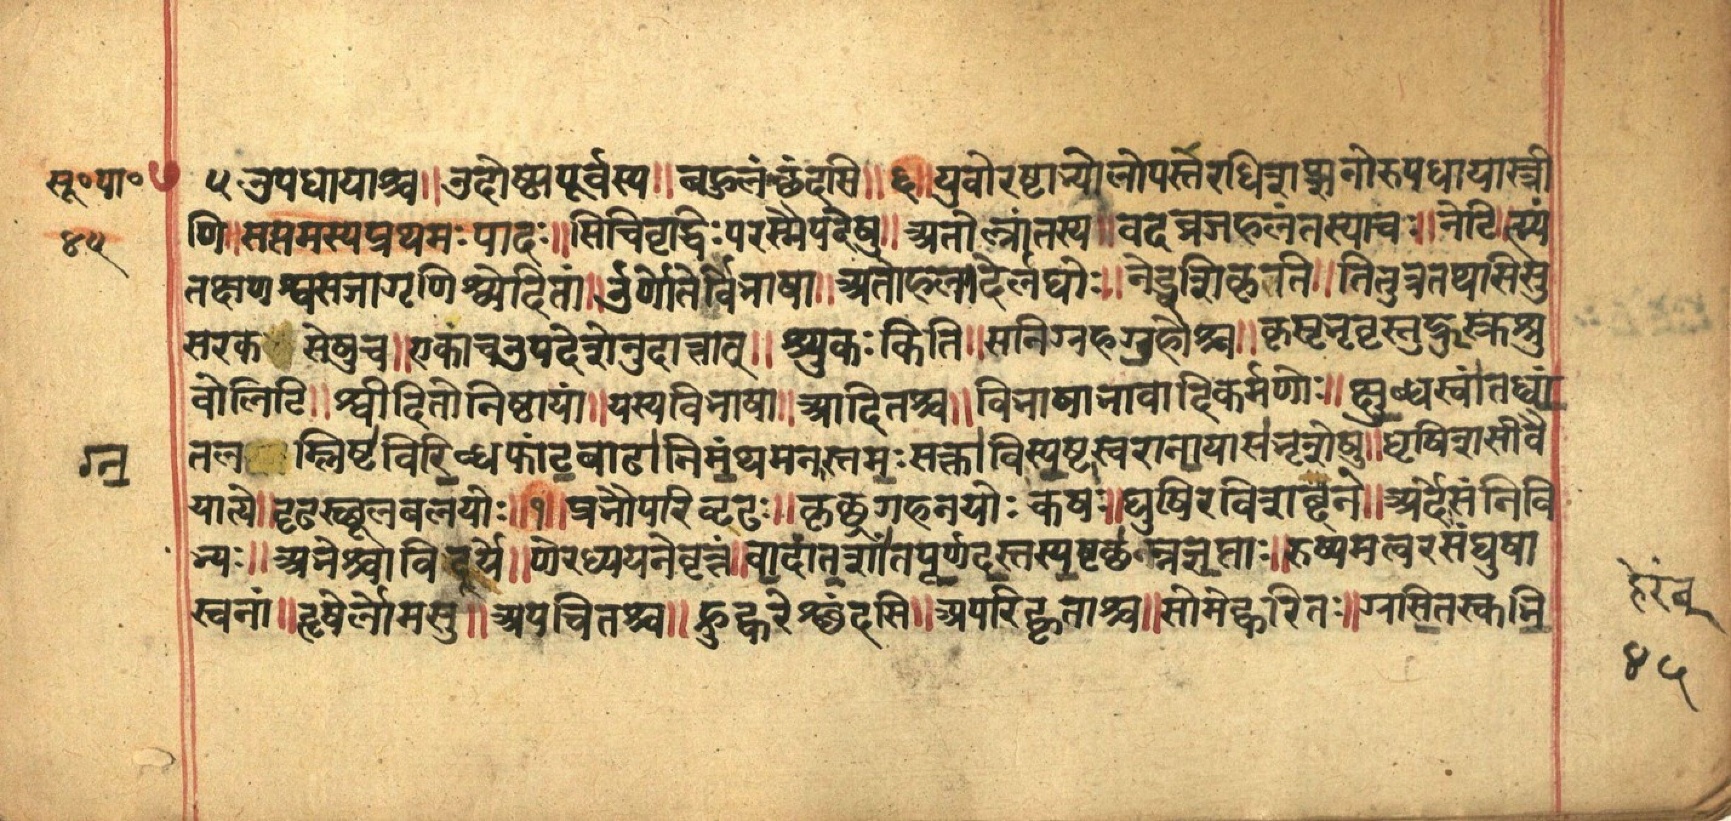 सू॰पा॰ ७
४५
५ उपधायाश्च॥ उदोष्ठ्यपूर्वस्य॥ बहुलंछंदसि॥ ६॥ युवोरष्टाभ्योलोपस्तेरधिशाप्मनोरुपधायास्त्री
णि॥ सप्तमस्यप्रथमःपादः॥ सिचिवृद्धिःपरस्मैपदेषु॥ अतोल्रांतस्य॥ वदव्रजहलंतस्याचः॥ नेटि॥ ह्म्यं
तक्षणश्वसजागृणिश्व्येदितां॥ ऊर्णोतेर्विभाषा॥ अतोहलादेर्लघोः॥ नेड्वशिकृति॥ तितुत्रतथासिसु
सरक सेषुच॥ एकाचउपदेशेनुदात्तात्॥ श्र्युकःकिति॥ सनिग्रहगुहोश्च॥ कृसृभृवृस्तुद्रुस्रुश्रु
वोलिटि॥ श्वीदितोनिष्ठायां॥ यस्यविभाषा॥ आदितश्च॥ विभाषाभावादिकर्मणोः॥ क्षुब्धस्वांतध्वां
तल म्लिष्टविरिब्धफांटबाढानिमंथमनस्तमःसक्ताविस्पष्टस्वरानायासभृशेषु॥ धृषिशसीवै
ग्न
यात्ये॥ दृढःस्थूलबलयोः॥ १॥ प्रभौपरिवृढः॥ कृछ्रगहनयोःकषः॥ घुषिरविशब्दने॥ अर्देःसंनिवि
भ्यः॥ अभेश्चाविदूर्ये॥ णेरध्ययनेवृत्तं॥ वादांतशांतपूर्णदस्तस्पष्टछन्नज्ञप्ताः॥ रुष्यमत्वरसंघुषा
स्वनां॥ हृषेर्लोमसु॥ अपचितश्च॥ ह्रुह्वरेश्छंदसि॥ अपरिह्वृताश्च॥ सोमेह्वरितः॥ ग्रसितस्कभि
हेरंब
४५